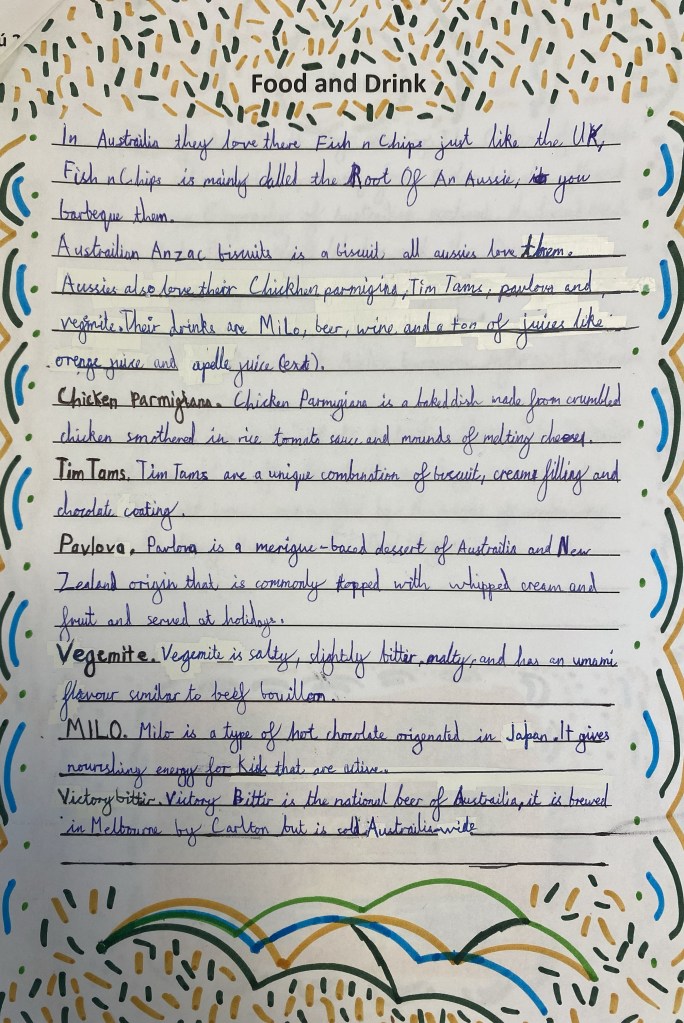 Food and Drink
In Austrailia they love there Fish n Chips just like the UK,
Fish n Chips is mainly called the Root Of An Aussie, you
barbeque them.
Austrailian Anzac biscuits is a biscuit all aussies love them.
Aussies also love their Chickhen parmigina, Tim Tams, pavlova and
vegimite. Their drinks are Milo, beer, wine, and a ton of juices like
orenge juice and apelle juice (ext).
Chicken Parmigiana. Chicken Parmigiana is a baked dish made from crumbled
chicken smothered in rice tomato sauce and mounds of melting cheeses.
Tim Tams. Tim Tams are a unique combination of biscuit, creame filling and
chocolate coating.
Pavlova. Pavlova is a merigue-baced dessert of Austrailia and New
Zealand origin that is commonly topped with whipped cream and
fruit and served at holidays.
Vegemite. Vegemite is salty, slightly bitter, malty, and has an umami
flavour similar to beef bouillon.
MILO. Milo is a type of hot chocolate origenated in Japan. It gives
nourishing energy for kids that are active.
Victory bittir. Victory Bittir is the national beer of Austrailia, it is brewed
in Melbourne by Carlton but is sold Austrailia-wide